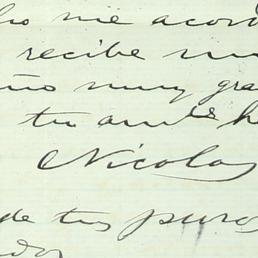 me acor
recibe mu
muy gra
tu am
Nicolas
de tus puros